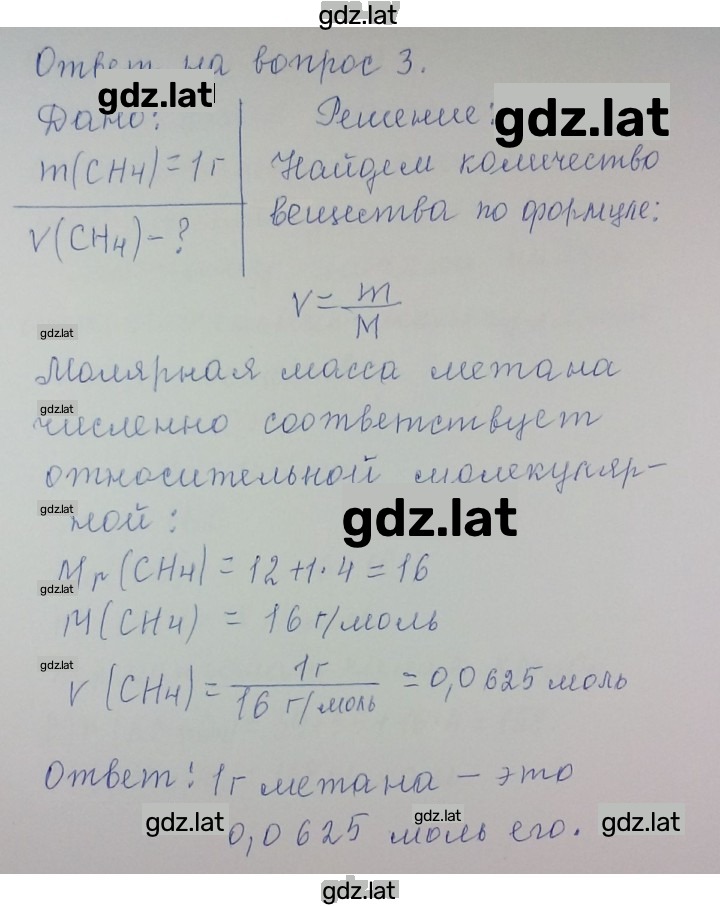 gdz.lat
Ответ на вопрос 3.
gdz.lat
gdz.lat
Дано:
Решение:
m(CH4) = 1г
Найдем количество
вещества по формуле:
ν(CH4) - ?
ν = m/M
gdz.lat
Молярная масса метана
gdz.lat
численно соответствует
относительной молекуляр-
gdz.lat
ной:
gdz.lat
Mr(CH4) = 12+1·4 = 16
gdz.lat
M(CH4) = 16 г/моль
gdz.lat
ν(CH4) = 1г/16 г/моль = 0,0625 моль
Ответ: 1г метана - это
gdz.lat
gdz.lat
gdz.lat
0,0625 моль его.
gdz.lat